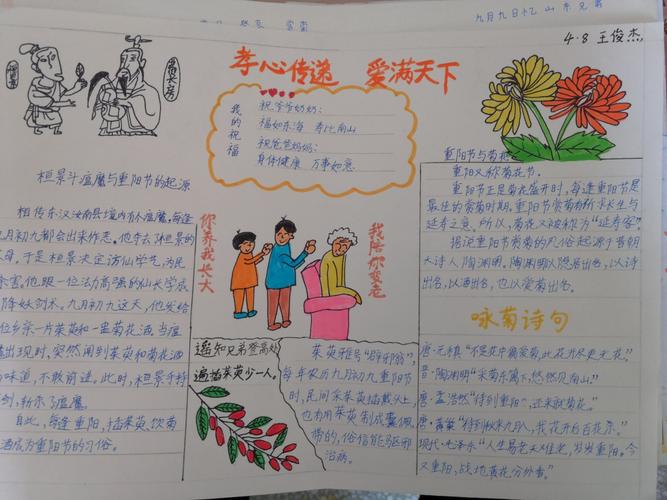 九月九日忆山东兄弟
4.8 王俊杰
孝心传递 爱满天下
桓景
费长房
我的祝福
祝爷爷奶奶:
福如东海 寿比南山
祝爸爸妈妈:
身体健康 万事如意
桓景斗瘟魔与重阳节的起源
相传东汉汝南县境内有个瘟魔,每逢
九月初九都会出来作恶。
母,于是桓景决定访仙学艺,为民
除害。他跟一位法力高强的仙长学成
降妖剑术。九月初九这天,他发给
位乡亲一片茱萸和一盅菊花酒,当瘟
出现时,突然闻到茱萸和菊花酒
味道,不敢前进。此时,桓景手持
剑,斩杀了瘟魔。
自此,每逢重阳,插茱萸、饮菊
酒成为重阳节的习俗。
你养我长大
我陪你变老
遥知兄弟登高处
遍插茱萸少一人。
茱萸雅号“辟邪翁”,
每年农历九月初九重阳节
时,民间采茱萸插戴头上,
也有用茱萸制成囊佩
带的,俗信能驱邪
治病。
重阳节与菊花
重阳又称菊花节。
重阳节正是菊花盛开时,每逢重阳节是
最佳的赏菊时期,重阳节赏菊有祈求长生与
延寿之意。所以,菊花又被称为“延寿客”。
据说重阳节赏菊的风俗起源于晋朝
大诗人陶渊明。陶渊明以隐居出名,以诗
出名,以酒出名,也以爱菊出名。
咏菊诗句
唐·元稹“不是花中偏爱菊,此花开尽更无花。”
晋·陶渊明“采菊东篱下,悠然见南山。”
唐·孟浩然“待到重阳日,还来就菊花。”
唐·黄巢“待到秋来九月八,我花开后百花杀。”
现代·毛泽东“人生易老天难老,岁岁重阳。今
又重阳,战地黄花分外香。”